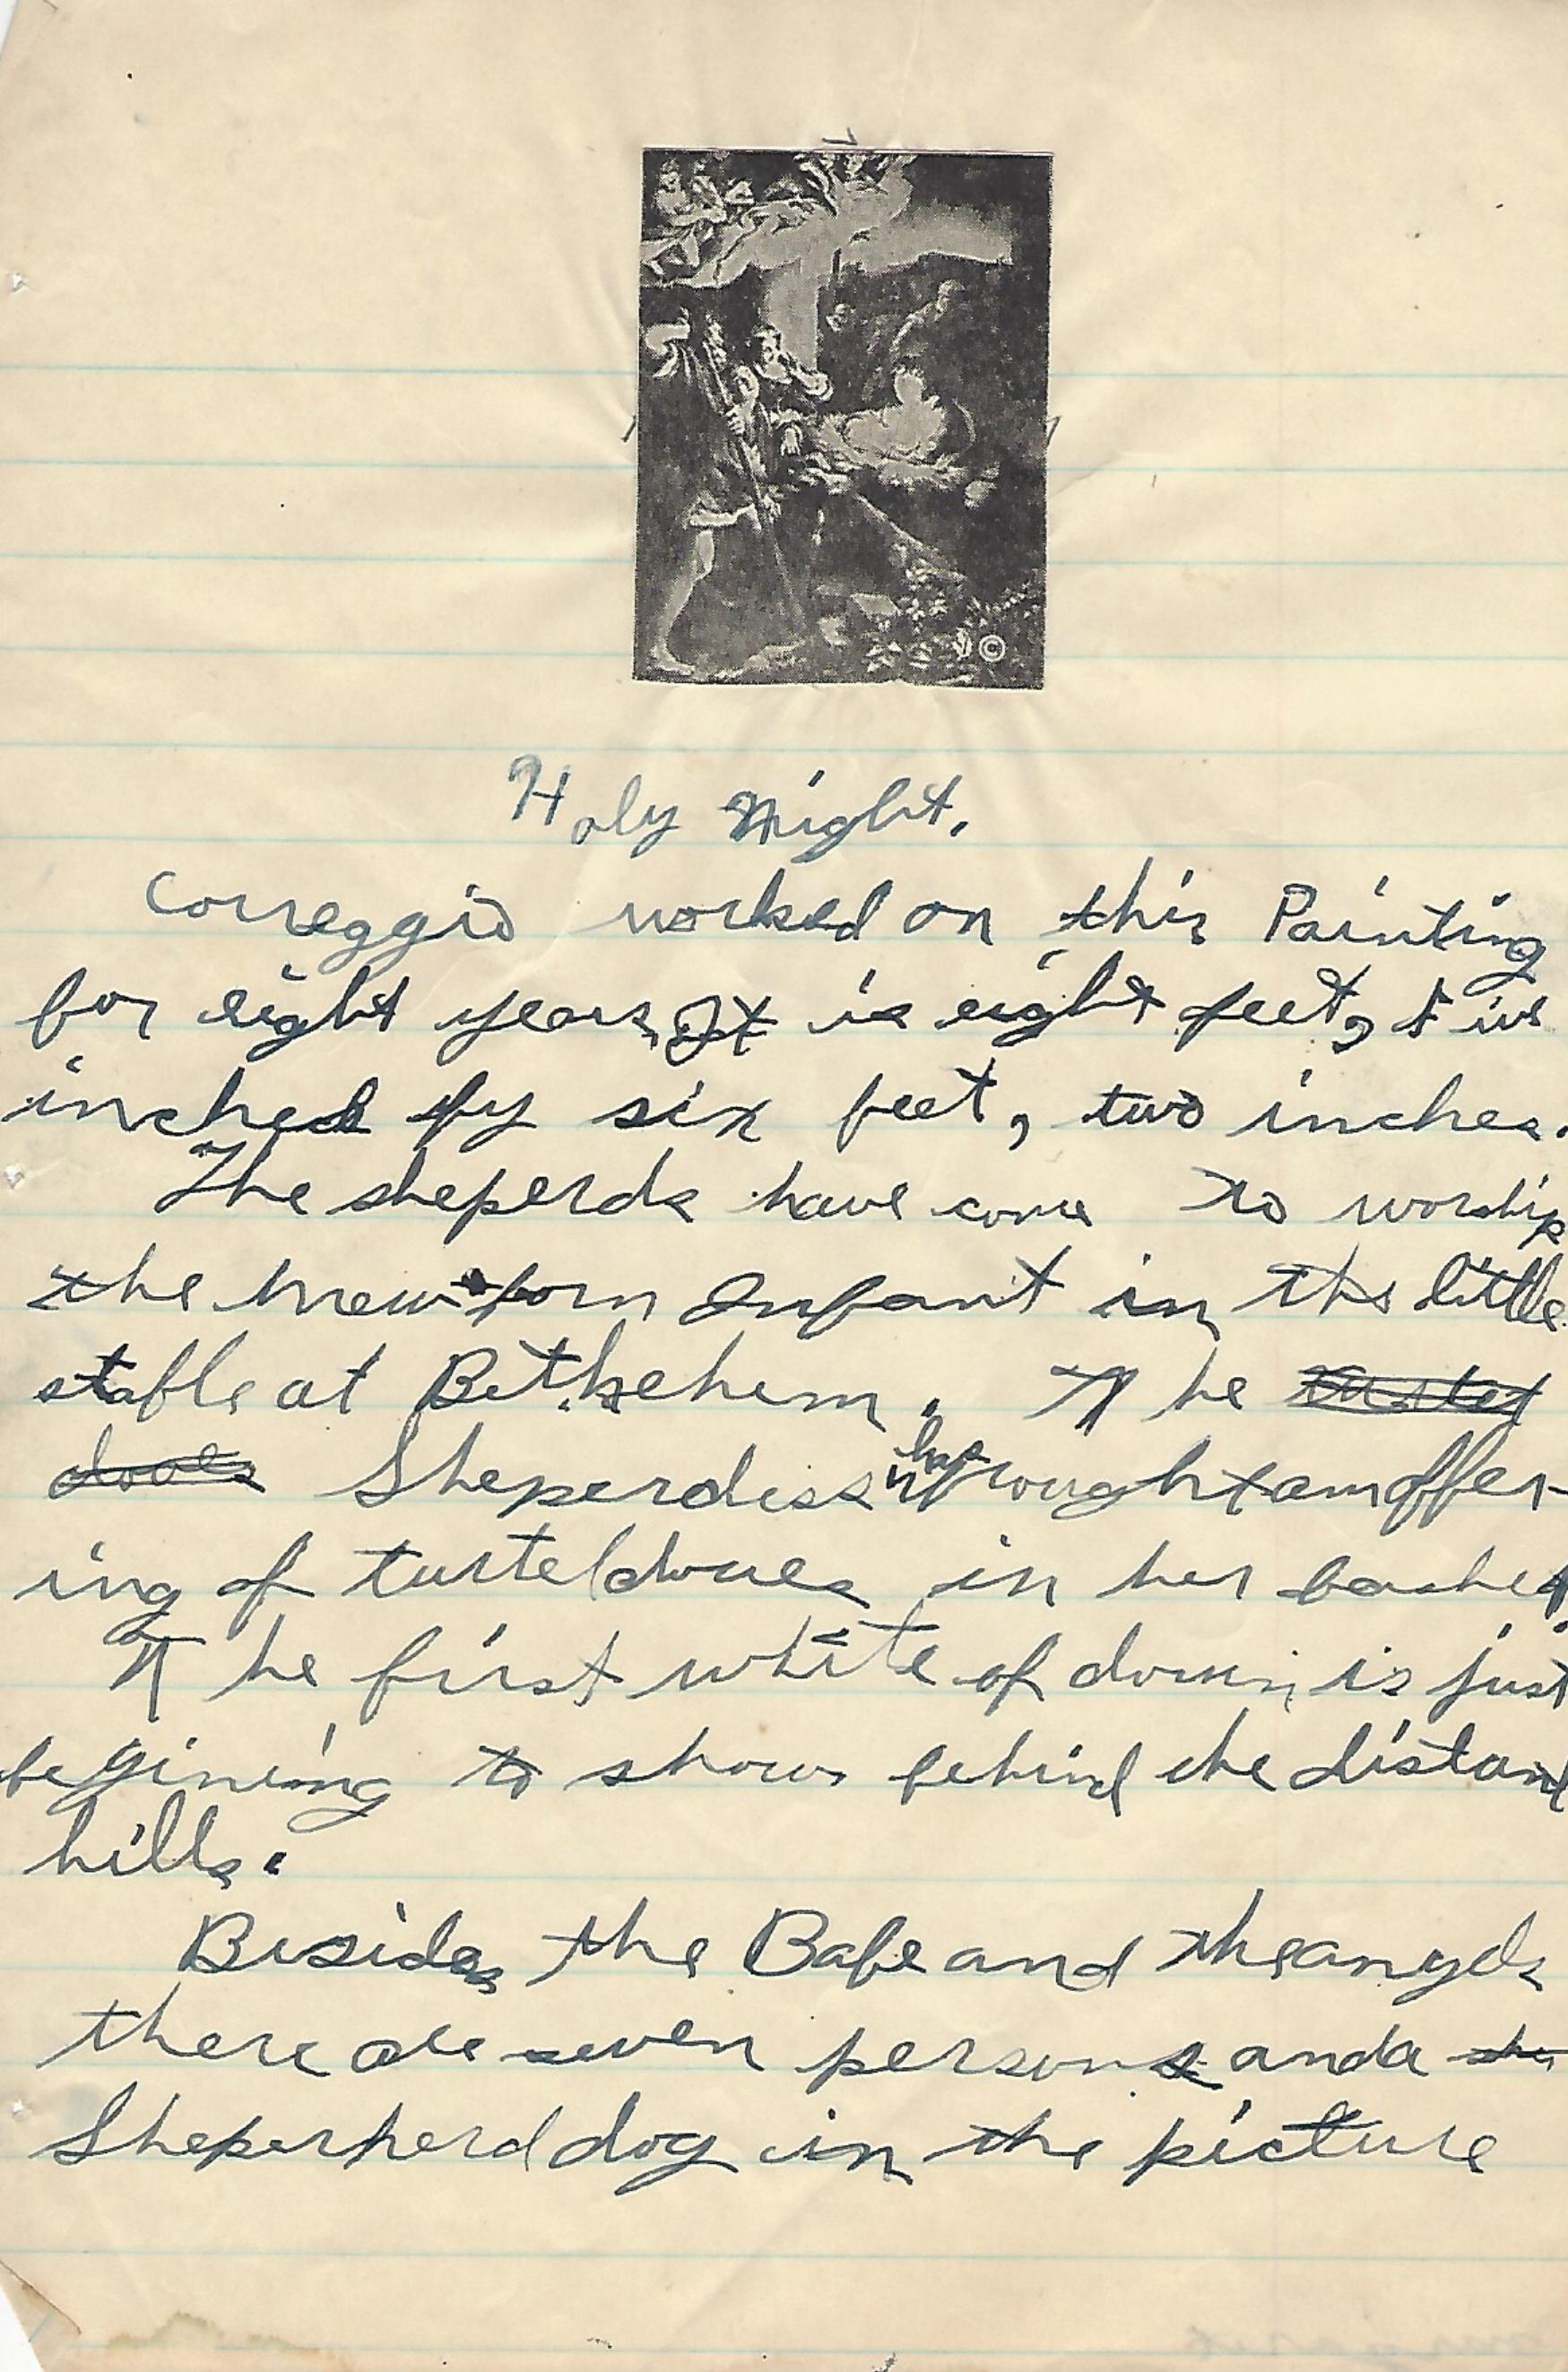 ©
Holy Night.
Correggio worked on this Painting
for eight years, It is eight feet, five
inched by six feet, two inches.
The sheperds have come to worship
the new-born Infant in the little
stable at Bethehem. The turtel
doves Sheperdess has brought an offer-
ing of turteldoves in her basket.
The first white of down is just
begining to show behind the distant
hills.
Besides the Babe and the angels
there are seven persons and a she
Sheperherd dog in the picture